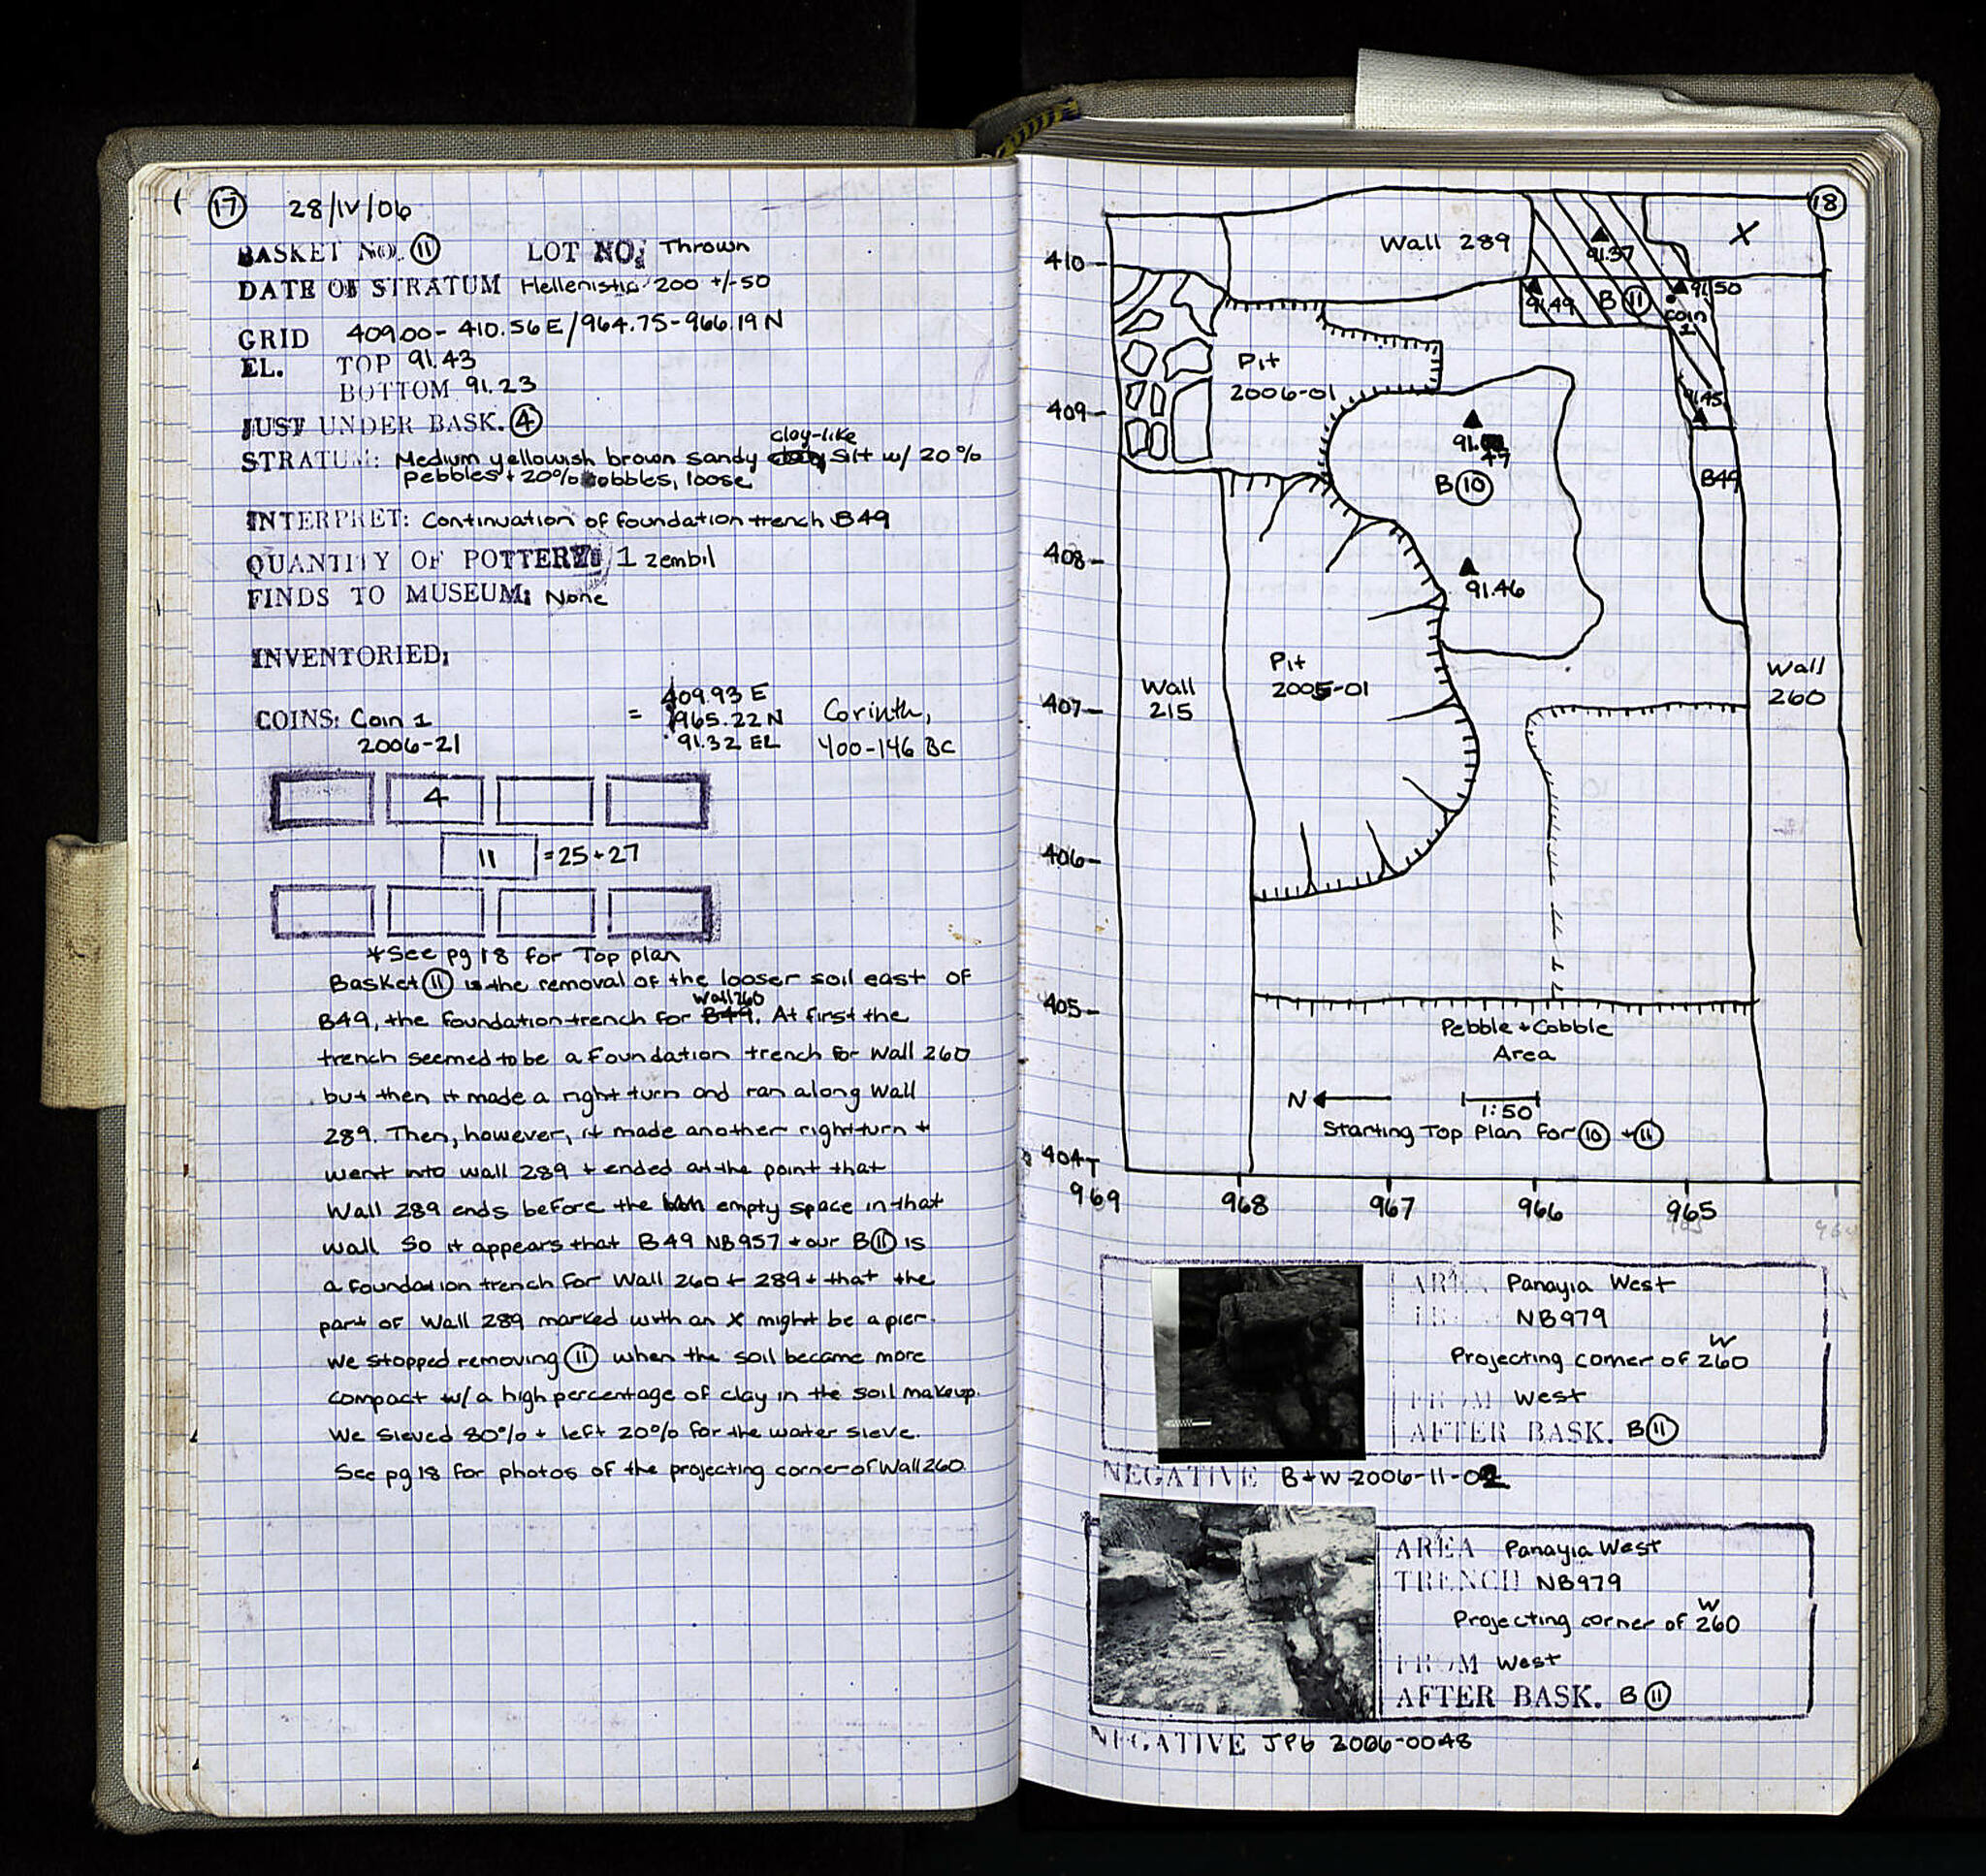 17 28/IV/06
BASKET NO. 11 LOT NO: Thrown
DATE OF STRATUM Hellenistic 200 +/-50
GRID 409.00-410.56E/964.75-966.19N
EL. TOP 91.43
BOTTOM 91.23
JUST UNDER BASK. 4
clay-like
STRATUM: Medium yellowish brown sandy silt w/ 20%
pebbles + 20% cobbles, loose
INTERPRET: Continuation of foundation trench B49
QUANTITY OF POTTERY: 1 zembil
FINDS TO MUSEUM: None
INVENTORIED:
COINS: Coin 1 = 409.93 E Corinth,
2006-21 965.22 N 400-146 BC
91.32 EL
4
11 = 25+27
*See pg 18 for Top plan
Basket 11 is the removal of the looser soil east of
wall 260
B49, the foundation trench for B49. At first the
trench seemed to be a foundation trench for Wall 260
but then it made a right turn and ran along Wall
289. Then, however, it made another right turn +
went into wall 289 + ended at the point that
Wall 289 ends before the empty space in that
wall So it appears that B49 NB957 + our B11 is
a foundation trench for Wall 260 + 289 + that the
part of Wall 289 marked with an X might be a pier.
We stopped removing 11 when the soil became more
compact w/ a high percentage of clay in the soil makeup.
We sieved 80% + left 20% for the water sieve.
See pg 18 for photos of the projecting corner of Wall 260.
18
Wall 289
X
91.37
410
91.49
B 11
91.50
coin
1
Pit
2006-01
409
91.45
91.47
B 10
B49
408
91.46
Wall
260
Pit
2005-01
Wall
215
407
406
405
Pebble + Cobble
Area
N
1:50
Starting Top Plan for 10 + 11
404
969 968 967 966 965
AREA Panayia West
NB979
W
Projecting corner of 260
FROM West
AFTER BASK. B11
NEGATIVE B+W 2006-11-02
AREA Panayia West
TRENCH NB979
W
Projecting corner of 260
FROM West
AFTER BASK. B 11
NEGATIVE JPG 2006-0048